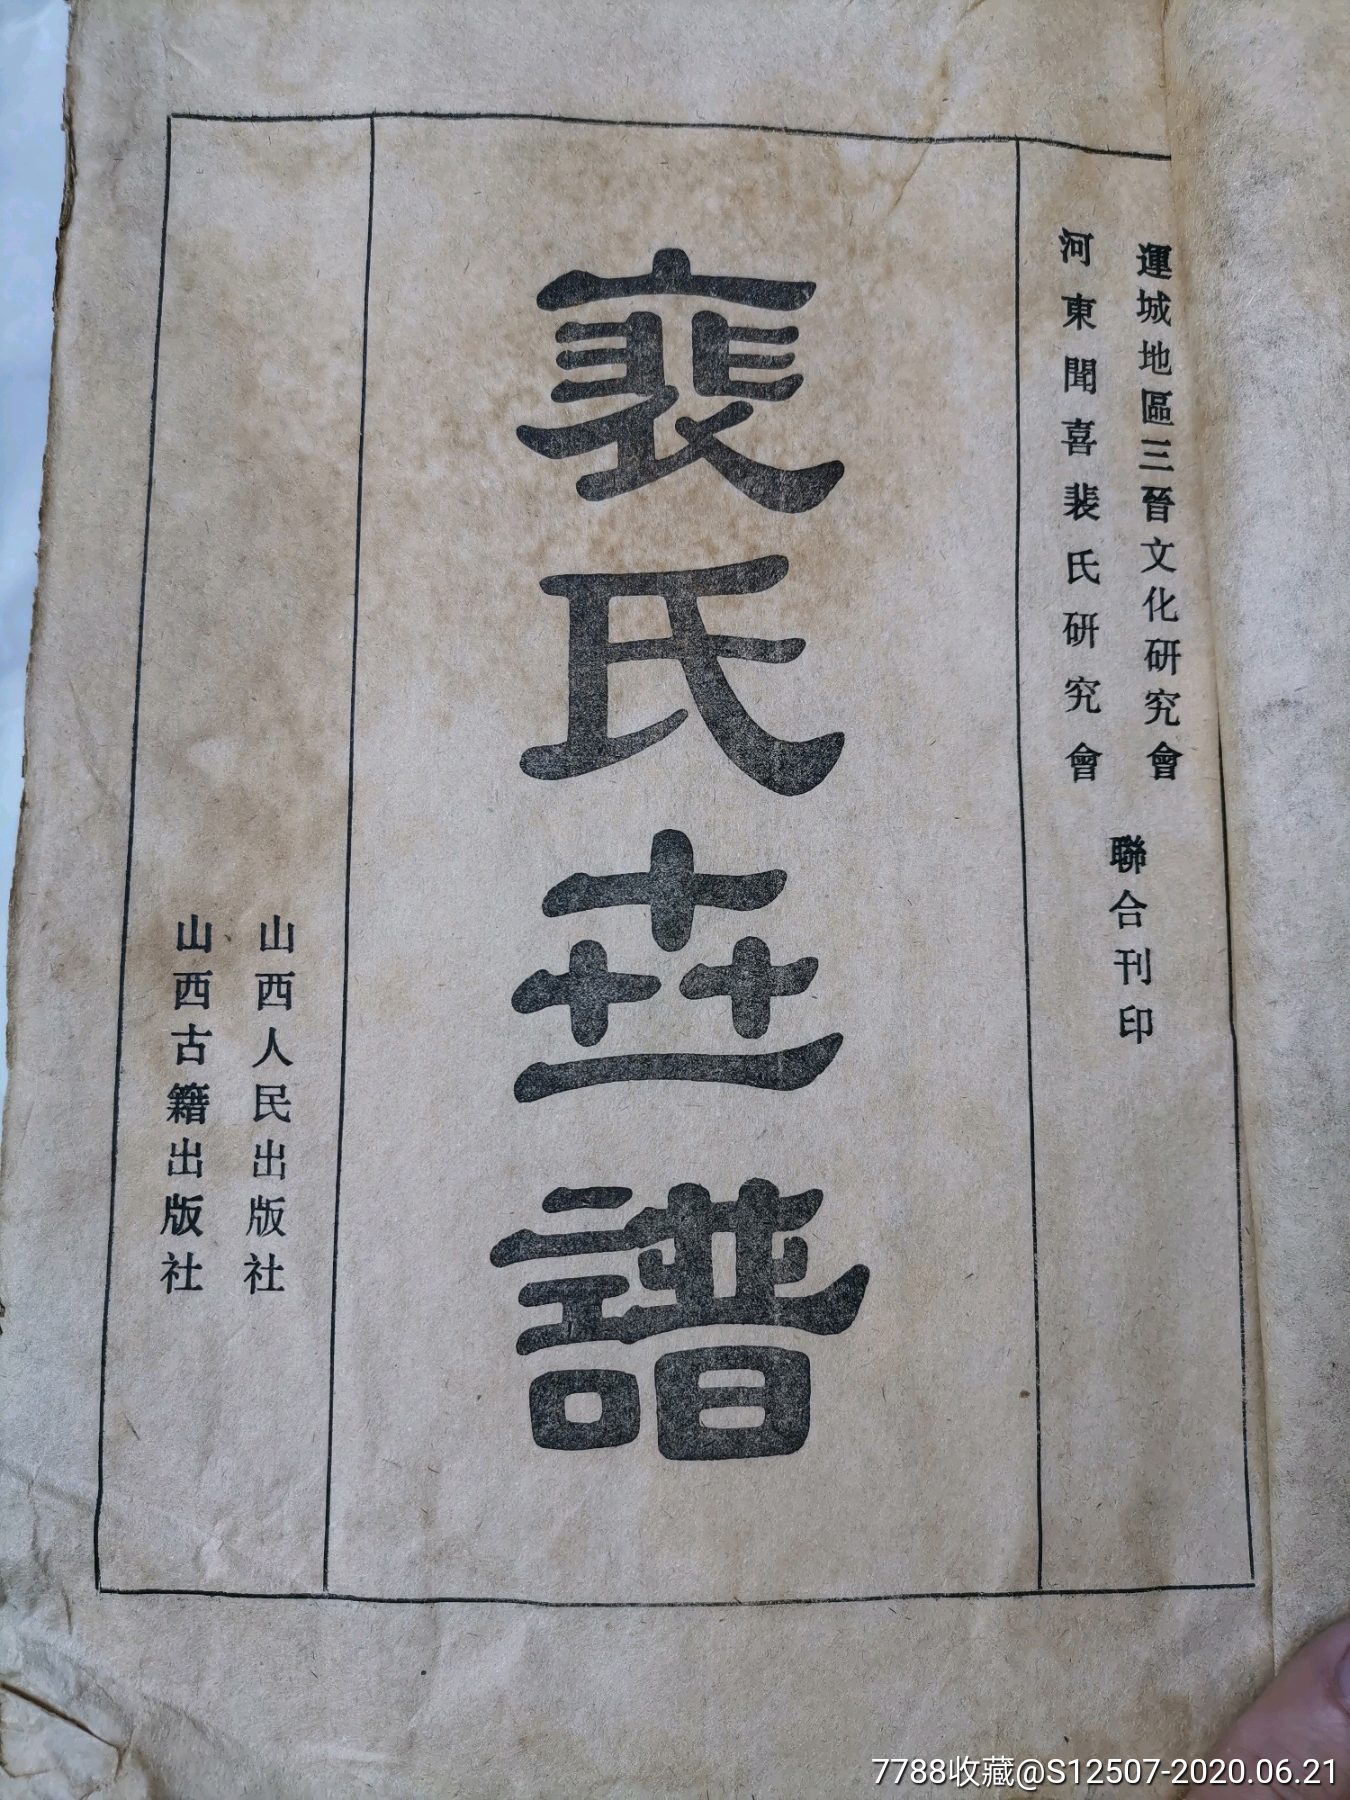 運城地區三晉文化研究會
河東聞喜裴氏研究會
聯合刊印
裴氏世譜
山西人民出版社
山西古籍出版社
7788收藏@S12507-2020.06.21